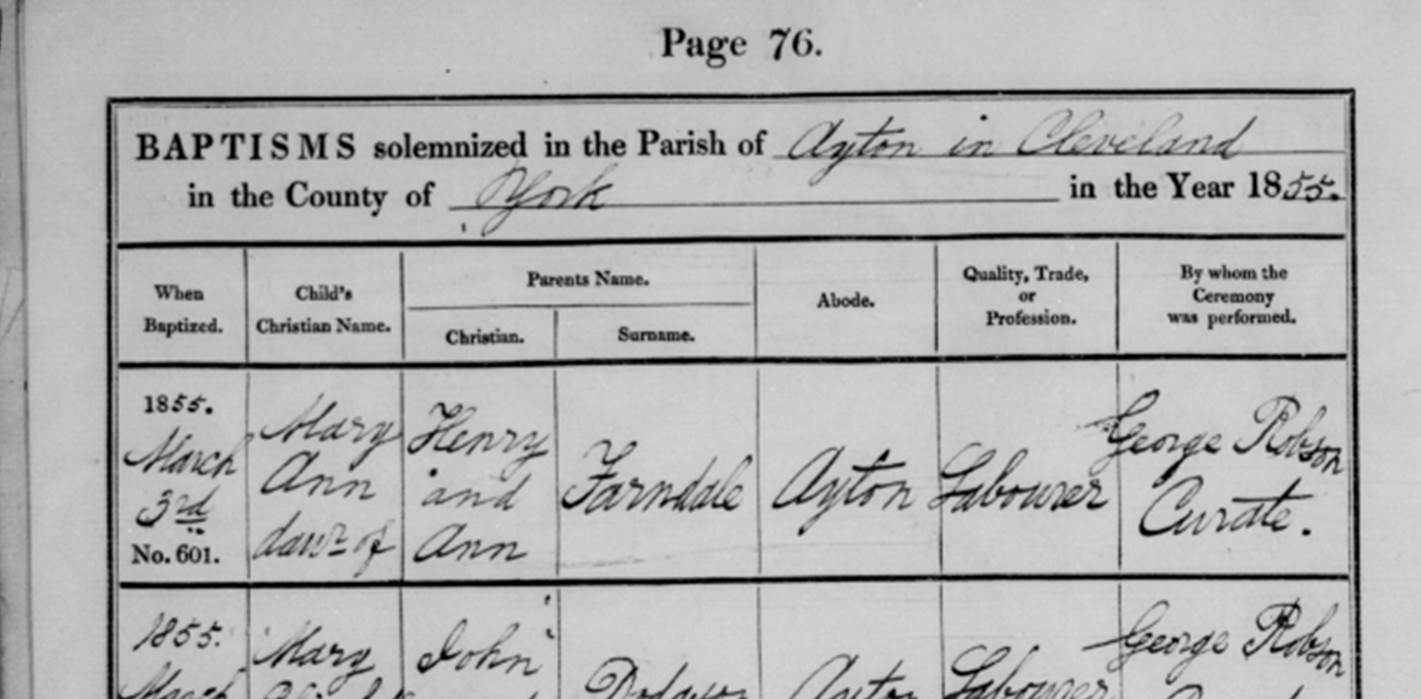 Page 76.
BAPTISMS solemnized in the Parish of Ayton in Cleveland
in the County of York in the Year 1855.
When Baptized.
Child's Christian Name.
Parents Name.
Christian.
Surname.
Abode.
Quality, Trade, or Profession.
By whom the Ceremony was performed.
1855.
March
3rd
No. 601.
Mary
Ann
daur of
Henry
and
Ann
Farndale
Ayton
Labourer
George Robson
Curate.
1855.
March
Mary
John
Ayton
Labourer
George Robson